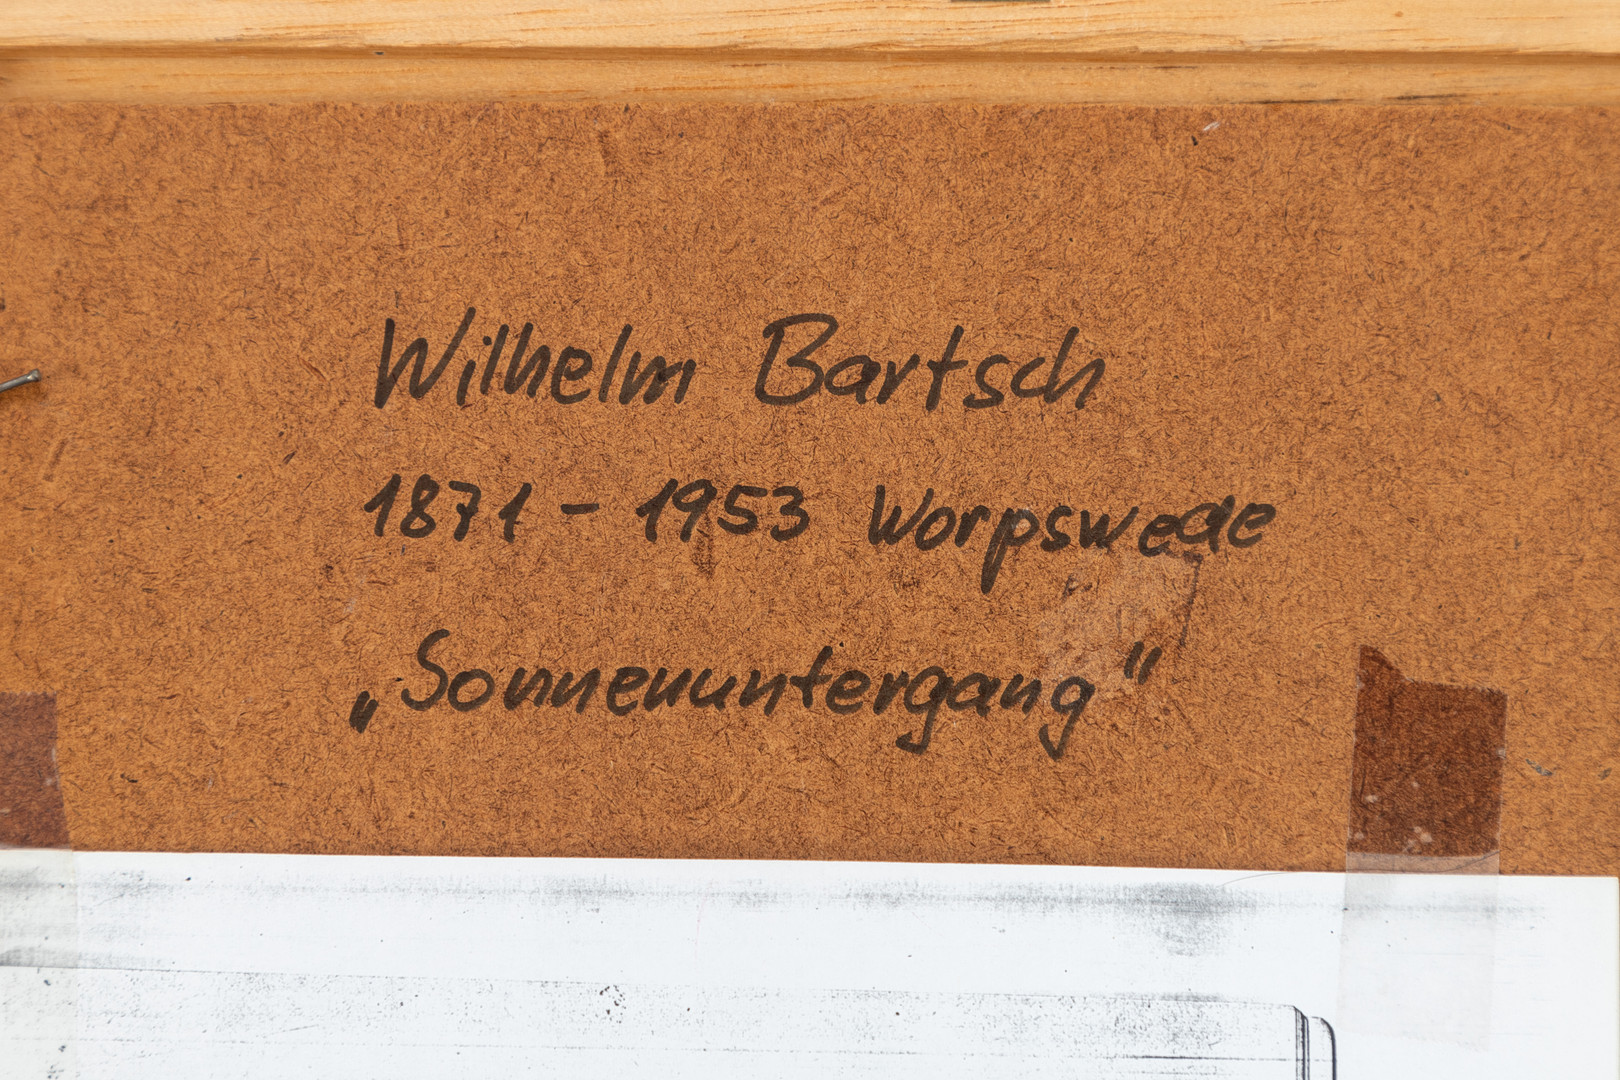 Wilhelm Bartsch
1871 - 1953 Worpswede
„Sonnenuntergang"